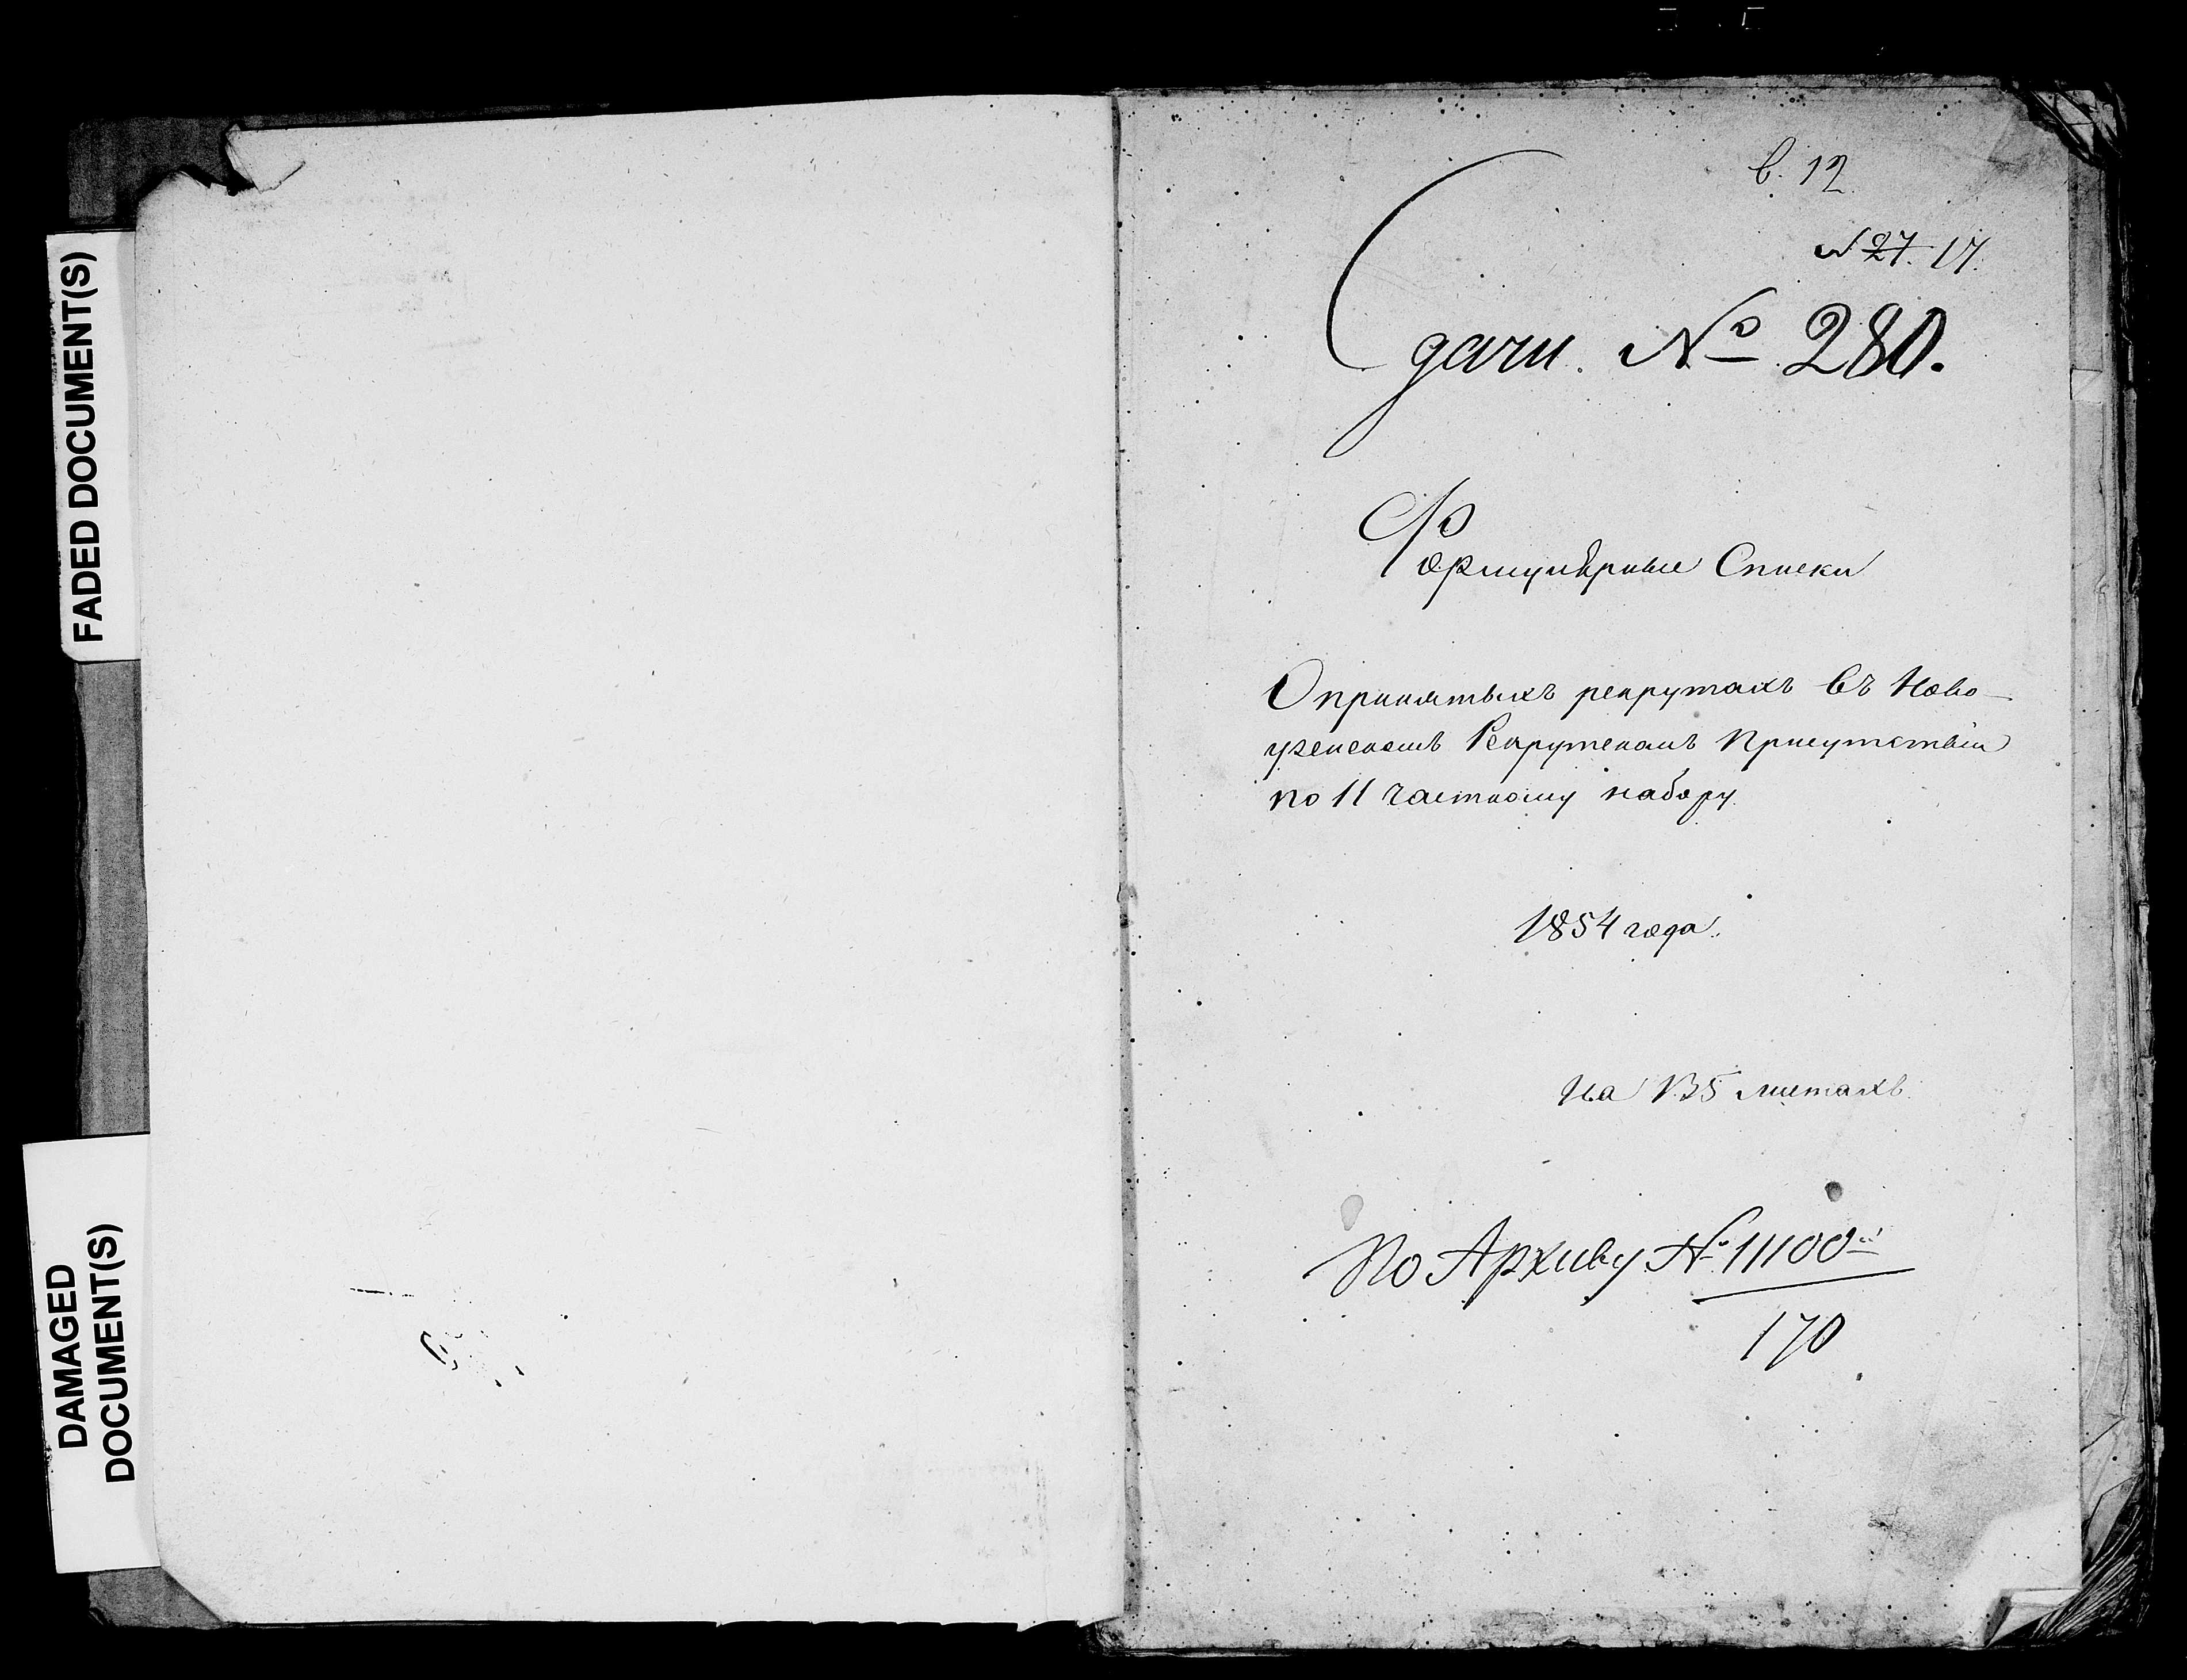 FADED DOCUMENT(S)
DAMAGED
DOCUMENT(S)
в. 12
N 27. 17.
Сдачи. № 280.
Формулѣрные Списки
О принятыхъ рекрутахъ въ Ново-
узенскомъ Рекрутскомъ Присутствiи
по 11 частному набору.
1854 года.
На 135 листахъ.
По Архиву № 11100
170